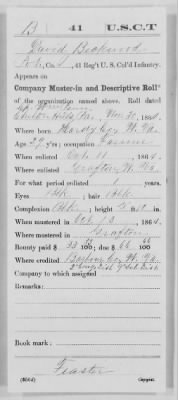 B 41 U.S.C.T.
David
Pvt., Co. , 41 Reg't U. S. Col'd Infantry.
Appears on
Company Muster-in and Descriptive Roll
of the organization named above. Roll dated
Nov. 30, 1864.
Where born Hardy Co. W. Va.
Age 29 y'rs; occupation Farmer
When enlisted Oct. 11, 1864.
Where enlisted Grafton W. Va.
For what period enlisted 1 years.
Eyes Blk; hair Blk
Complexion Blk; height ft. in.
When mustered in Oct. 13, 1864.
Where mustered in Grafton
Bounty paid $ 33 /100; due $ 66 /100
Where credited Barbour Co. W. Va.
2 Cong Dist Sub Dist
Company to which assigned
Remarks:
Book mark:
Feaster
Copyist.